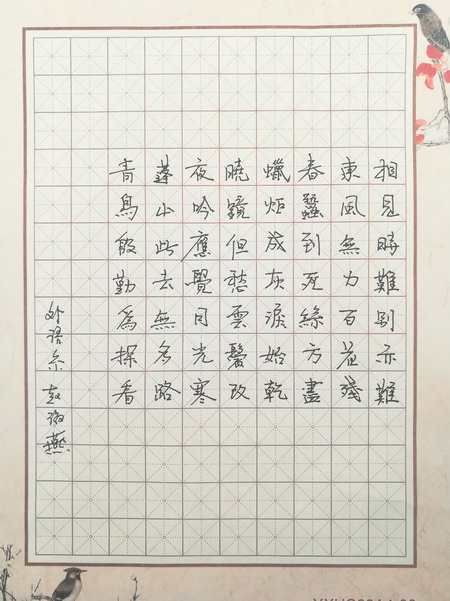 相見時難別亦難
東風無力百花殘
春蠶到死絲方盡
蠟炬成灰淚始乾
曉鏡但愁雲鬢改
夜吟應覺月光寒
蓬山此去無多路
青鳥殷勤為探看
外语系 赵燕